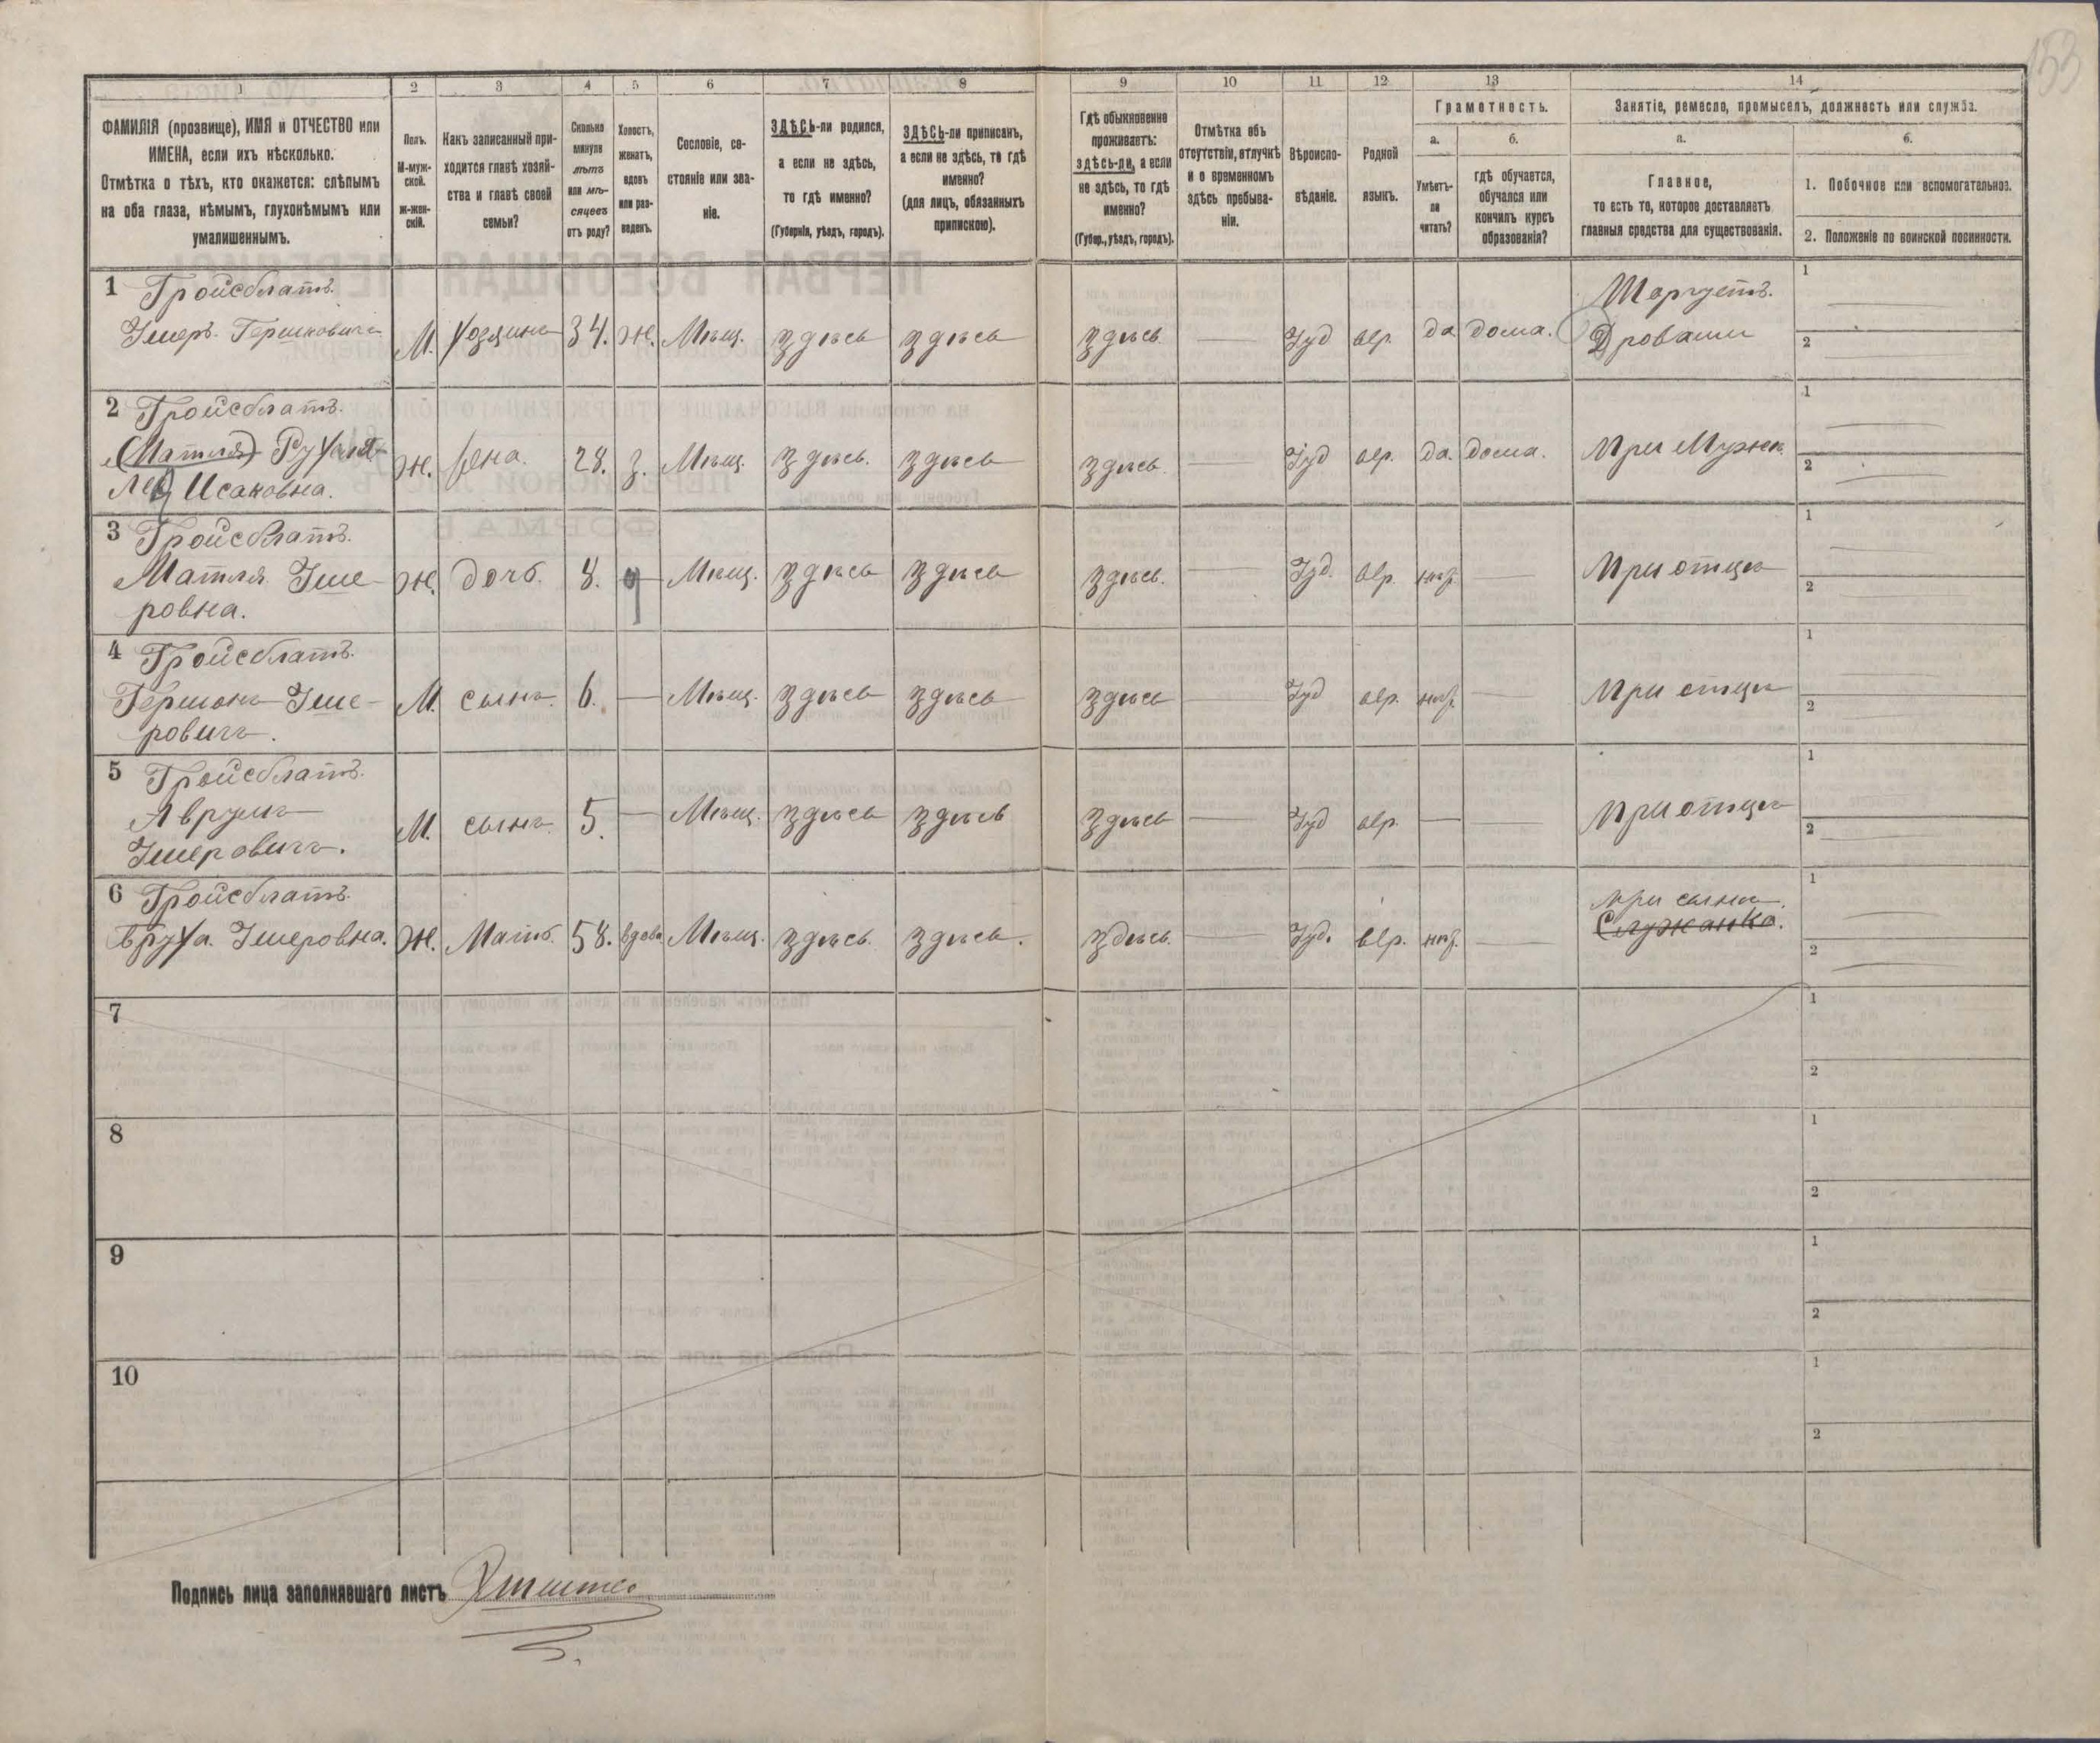 153
1 2 3 4 5 6 7 8 9 10 11 12 13 14
ФАМИЛІЯ (прозвище), ИМЯ и ОТЧЕСТВО или
ИМЕНА, если ихъ нѣсколько.
Отмѣтка о тѣхъ, кто окажется: слѣпымъ
на оба глаза, нѣмымъ, глухонѣмымъ или
умалишеннымъ.
Полъ.
М-муж-
ской.
ж-жен-
скій.
Какъ записанный при-
ходится главѣ хозяй-
ства и главѣ своей
семьи?
Сколько
минуло
лѣтъ
или мѣ-
сяцевъ
отъ роду?
Холостъ,
женатъ,
вдовъ
или раз-
веденъ.
Сословіе, со-
стояніе или зва-
ніе.
ЗДѢСЬ-ли родился,
а если не здѣсь,
то гдѣ именно?
(Губернія, уѣздъ, городъ).
ЗДѢСЬ-ли приписанъ,
а если не здѣсь, то гдѣ
именно?
(для лицъ, обязанныхъ
припискою).
Гдѣ обыкновенно
проживаетъ:
здѣсь-ли, а если
не здѣсь, то гдѣ
именно?
(Губер., уѣздъ, городъ).
Отмѣтка объ
отсутствіи, отлучкѣ
и о временномъ
здѣсь пребыва-
ніи.
Вѣроиспо-
вѣданіе.
Родной
языкъ.
Грамотность.
а.
Умѣетъ-
ли
читать?
б.
гдѣ обучается,
обучался или
кончилъ курсъ
образованія?
Занятіе, ремесло, промыселъ, должность или служба.
а.
Главное,
то есть то, которое доставляетъ
главныя средства для существованія.
б.
1. Побочное или вспомогательное.
2. Положеніе по воинской повинности.
1 Гройсблатъ.
Умеръ Гершковичъ М. хозяинъ 34. ж. Мѣщ. здѣсь здѣсь здѣсь Іуд евр. да дома. Торгуетъ. Дровами 1 2
2 Гройсблатъ.
(Матля) Рухля-
Лея Исаковна. ж. жена. 28. з. Мѣщ. здѣсь. здѣсь здѣсь Іуд евр. да. дома. При Мужѣ. 1 2
3 Гройсблатъ.
Матля Уме-
ровна. ж. дочь. 8. Мѣщ. здѣсь здѣсь здѣсь. Іуд. евр. нѣт При отцѣ 1 2
4 Гройсблатъ.
Гершонъ Уме-
ровичъ. М. сынъ. 6. — Мѣщ. здѣсь здѣсь здѣсь Іуд евр. нѣт При отцѣ 1 2
5 Гройсблатъ.
Аврумъ
Умеровичъ. М. сынъ. 5. — Мѣщ. здѣсь здѣсь здѣсь Іуд евр. — При отцѣ 1 2
6 Гройсблатъ.
Бруха Умеровна. ж. Мать. 58. вдова Мѣщ. здѣсь. здѣсь. здѣсь. Іуд. евр. нѣт при сынѣ. Служанка. 1 2
7 1 2
8 1 2
9 1 2
10 1 2
Подпись лица заполнявшаго листъ